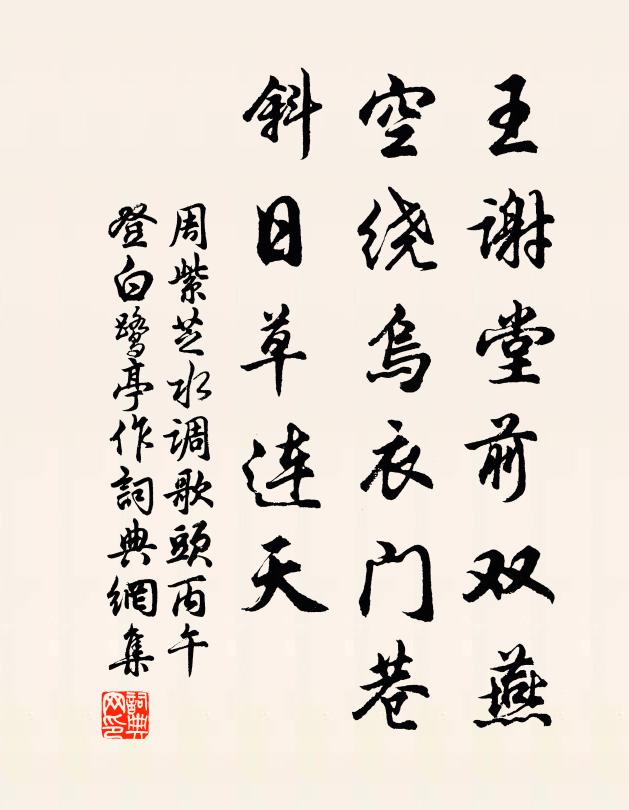 王谢堂前双燕
空绕乌衣门巷
斜日草连天
周紫芝水调歌頭丙午
登白鹭亭作詞典網集
詞典
网印